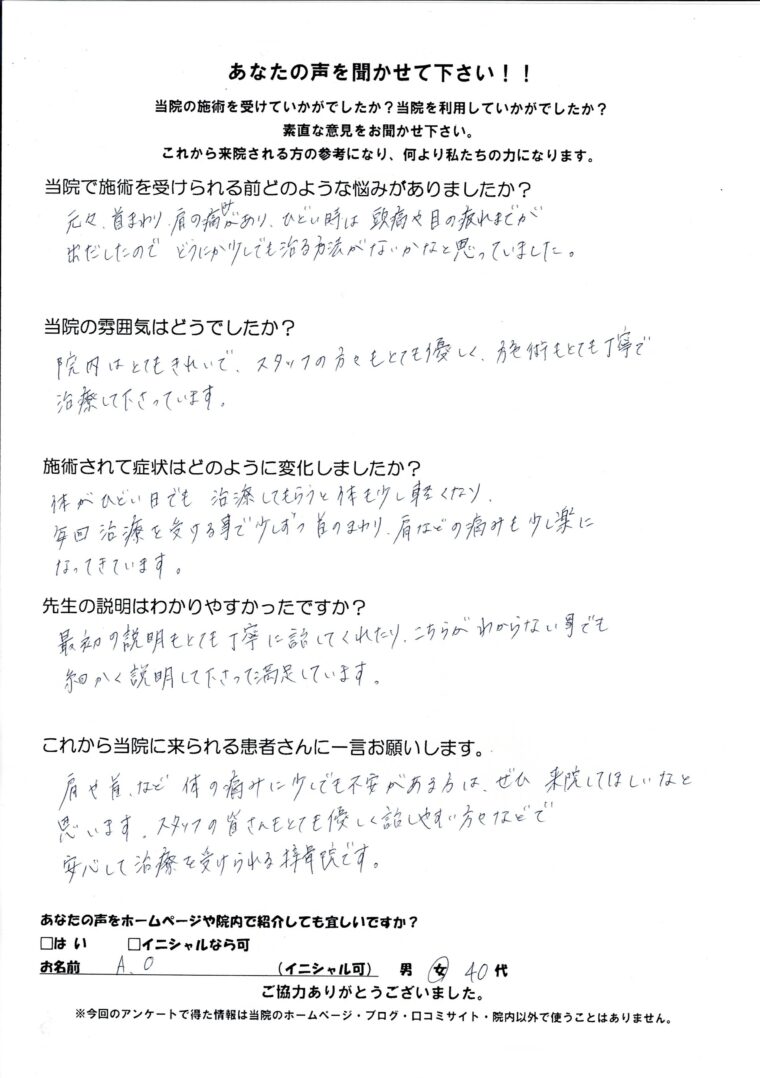 あなたの声を聞かせて下さい！！
当院の施術を受けていかがでしたか？当院を利用していかがでしたか？
素直な意見をお聞かせ下さい。
これから来院される方の参考になり、何より私たちの力になります。
当院で施術を受けられる前どのような悩みがありましたか？
元々、首まわり、肩の痛みがあり、ひどい時は 頭痛や目の疲れまでが
出だしたので どうにか少しでも治る方法がないかなと思っていました。
当院の雰囲気はどうでしたか？
院内はとてもきれいで、スタッフの方々もとても優しく、施術もとても丁寧で
治療して下さっています。
施術されて症状はどのように変化しましたか？
体がひどい日でも 治療してもらうと体も少し軽くなり、
毎回治療を受ける事で少しずつ首のまわり、肩などの痛みも少し楽に
なってきています。
先生の説明はわかりやすかったですか？
最初の説明もとても丁寧に話してくれたり、こちらがわからない事でも
細かく説明して下さって満足しています。
これから当院に来られる患者さんに一言お願いします。
肩や首、など 体の痛みに少しでも不安がある方は、ぜひ 来院してほしいなと
思います。スタッフの皆さんもとても優しく話しやすい方々などで
安心して治療を受けられる接骨院です。
あなたの声をホームページや院内で紹介しても宜しいですか？
□はい □イニシャルなら可
お名前 A.O （イニシャル可） 男 女 40代
ご協力ありがとうございました。
※今回のアンケートで得た情報は当院のホームページ・ブログ・口コミサイト・院内以外で使うことはありません。